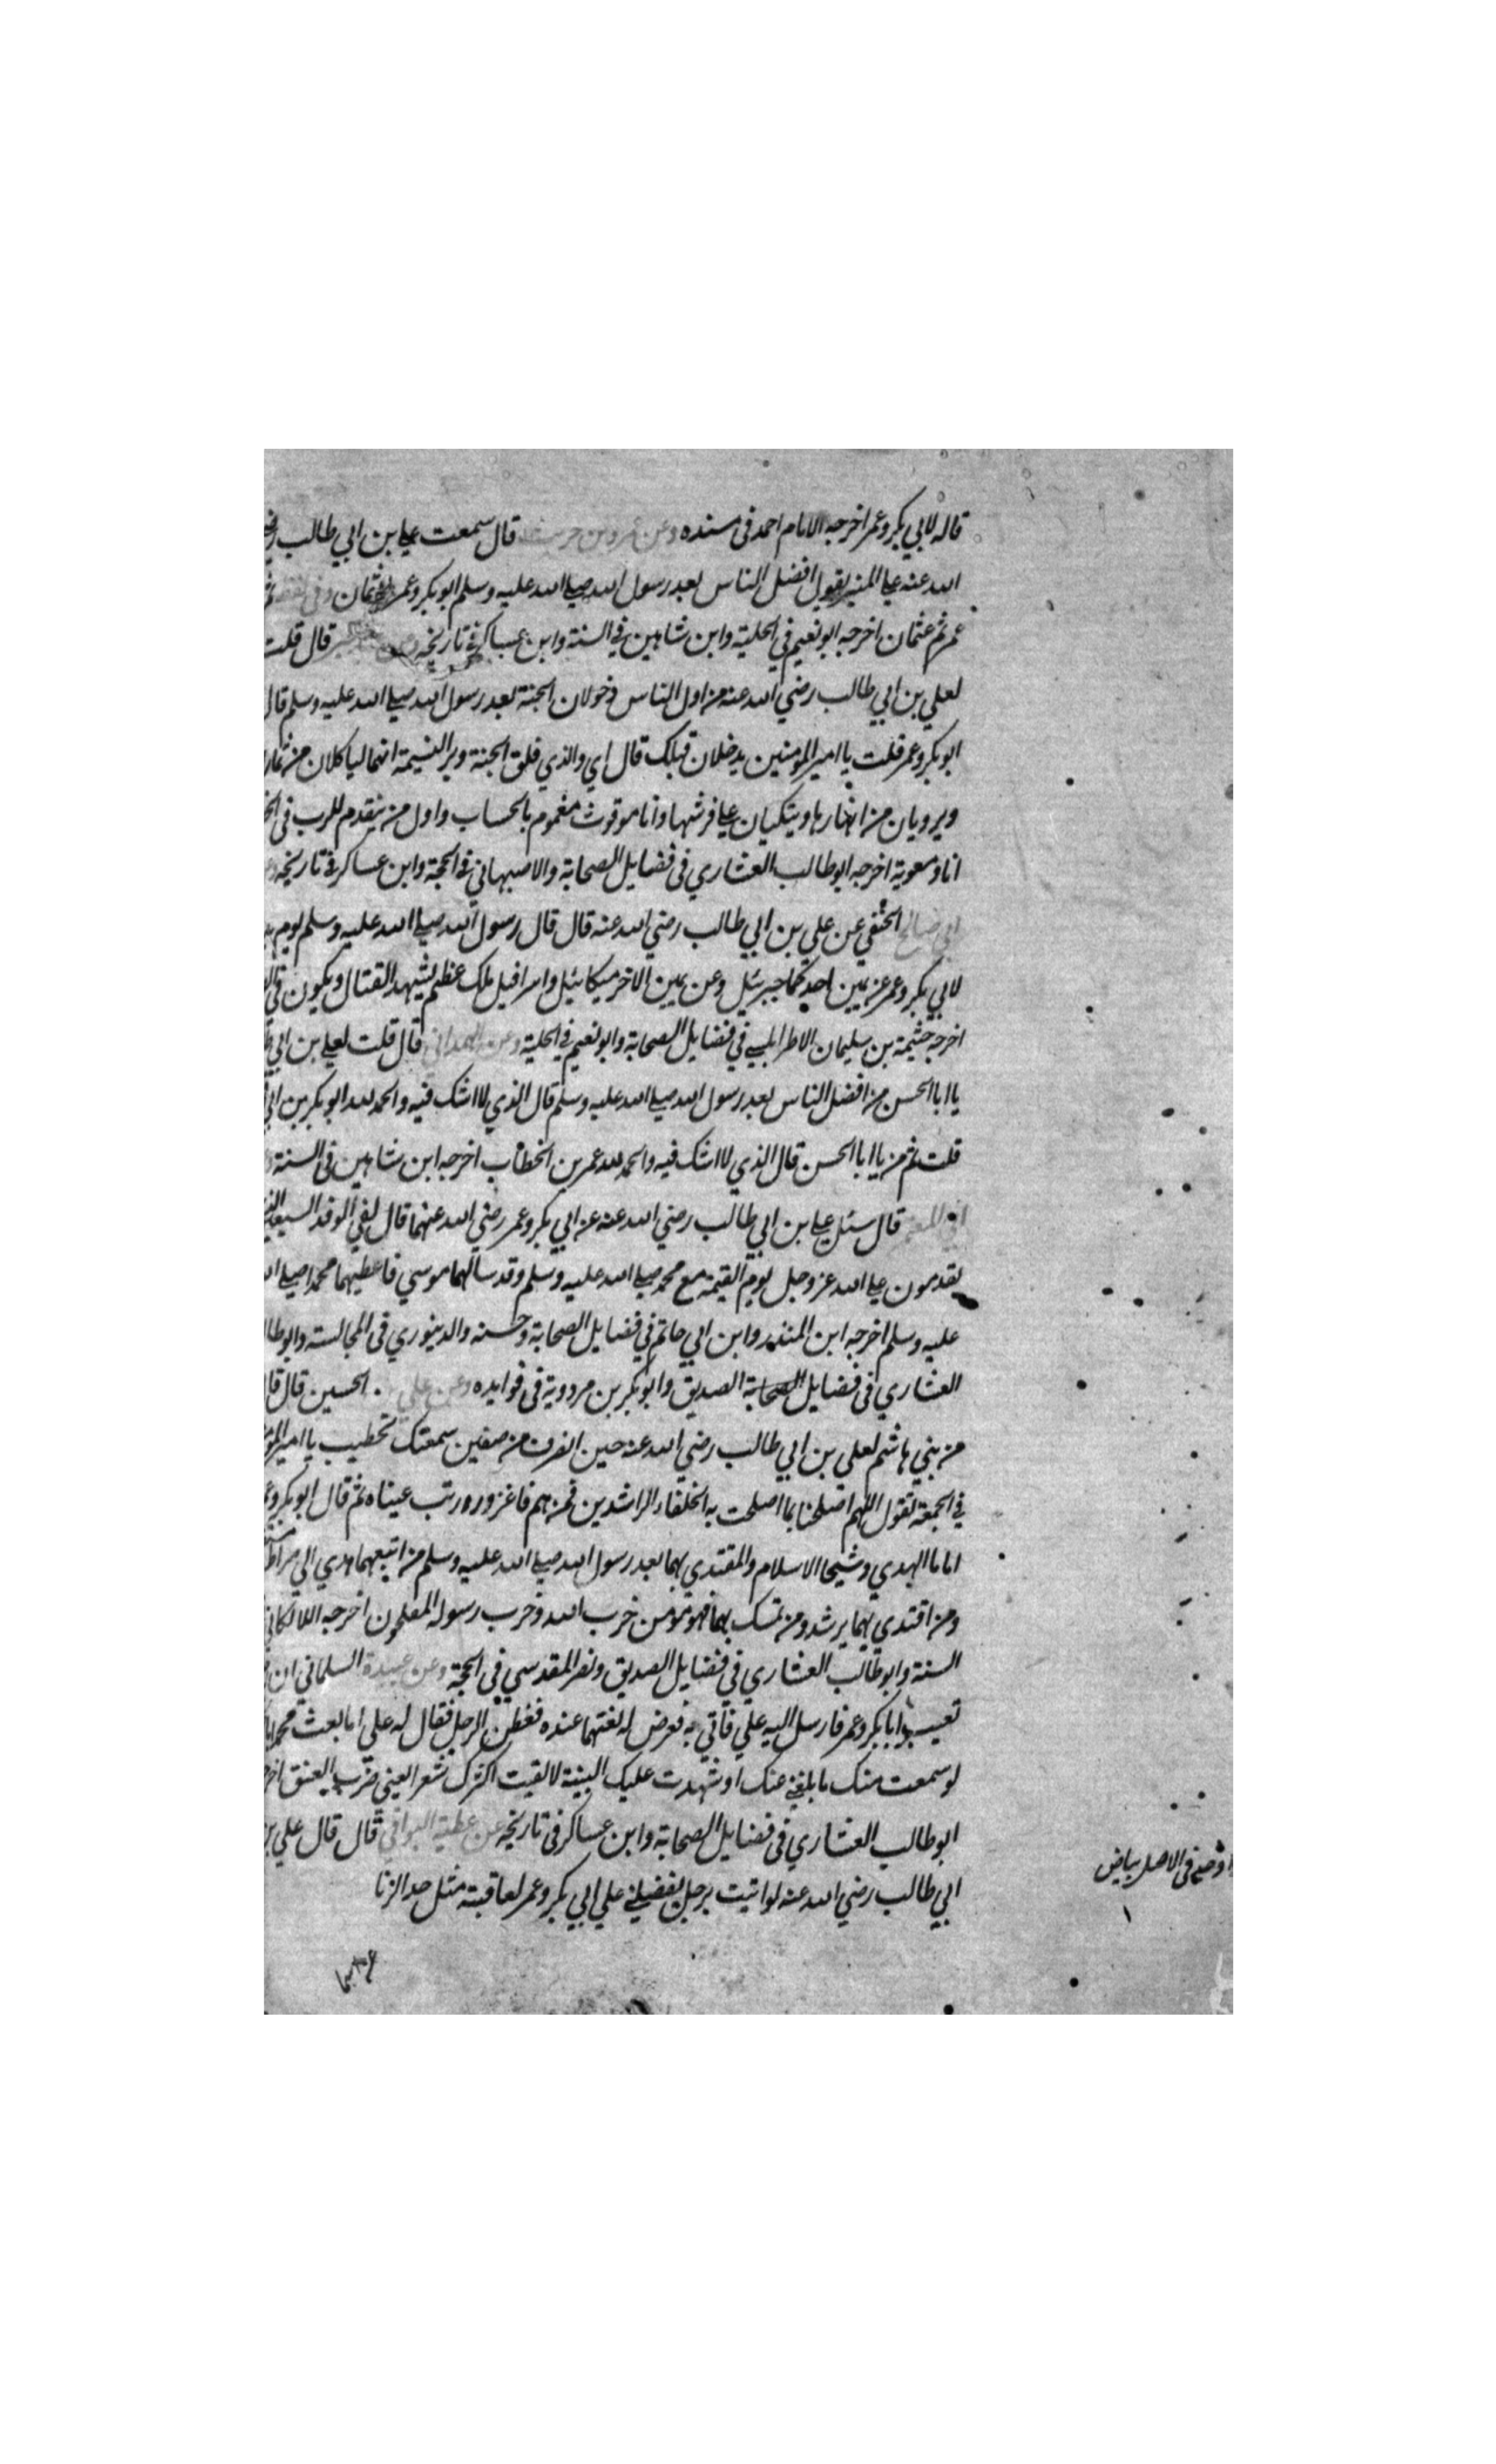 قاله لابي بكر وعمر اخرجه الامام احمد في مسنده وعن عمرو بن حريث قال سمعت علي بن ابي طالب رضي
الله عنه علي المنبر يقول افضل الناس بعد رسول الله صلي الله عليه وسلم ابو بكر وعمر وعثمان وفي لفظ ثم
عمر ثم عثمان اخرجه ابو نعيم في الحلية وابن شاهين في السنة وابن عساكر في تاريخه قال قلت
لعلي بن ابي طالب رضي الله عنه من اول الناس دخولان الجنة بعد رسول الله صلي الله عليه وسلم قال
ابو بكر وعمر قلت يا امير المومنين يدخلان قبلك قال اي والذي فلق الجنة وبر النسيمة انهما لياكلان من ثمار
ويرويان من انهارها ويتكيان علي فرشها وانا موقوت مغموم بالحساب واول من يتقدم للرب في
انا ومعوية اخرجه ابو طالب العشاري في فضايل الصحابة والاصبهاني في الحجة وابن عساكر في تاريخه
ابي صالح الحنفي عن علي بن ابي طالب رضي الله عنه قال قال رسول الله صلي الله عليه وسلم يوم
لابي بكر وعمر عن يمين احدكما جبرئيل وعن يمين الاخر ميكائيل واسرافيل ملك عظيم يشهد القتال ويكون في
اخرجه خثيمة بن سليمان الاطرابلسي في فضايل الصحابة وابو نعيم في الحلية وعن الهمداني قال قلت لعلي بن ابي
يا ابا الحسن من افضل الناس بعد رسول الله صلي الله عليه وسلم قال الذي لا اشك فيه والحمد لله ابو بكر بن ابي
قلت ثم من يا ابا الحسن قال الذي لا اشك فيه والحمد لله عمر بن الخطاب اخرجه ابن شاهين في السنة
قال سئل علي بن ابي طالب رضي الله عنه عن ابي بكر وعمر رضي الله عنهما قال لفي الوفد السبعين
يقدمون علي الله عز وجل يوم القيمة مع محمد صلي الله عليه وسلم وقد سالهما موسي فاعطيهما محمدا صلي
عليه وسلم اخرجه ابن المنذر وابن ابي حاتم في فضايل الصحابة وحسنه والدينوري في المجالسة وابو طا
العشاري في فضايل الصحابة الصديق وابو بكر بن مردوية في فوايده وعن علي الحسين قال قا
من بني هاشم لعلي بن ابي طالب رضي الله عنه حين انصرف من صفين سمعتك تخطيب يا امير المو
في الجمعة تقول اللهم اصلحنا بما اصلحت به الخلفاء الراشدين فمن هم فاغزوره ورتب عيناه ثم قال ابو بكر وع
اماما الهدي وشيخا الاسلام والمقتدي بهما بعد رسول الله صلي الله عليه وسلم من اتبعهما هدي الي صراط
ومن اقتدي بهما يرشد ومن تمسك بهما فهو مومن حزب الله وحزب رسوله المفلحون اخرجه اللالكائي
السنة وابو طالب العشاري في فضايل الصديق ونصر المقدسي في الحجة وعن عبيدة السلماني ان
تعيب ابا بكر وعمر فارسل اليه علي فاتي به فعرض له بغتهما عنده ففطن الرجل فقال له علي اما بعث محمدا
لو سمعت منك ما بلغني عنك او شهدت عليك البينة لالقيت اكثرك شعرا يعني ضرب العنق اخر
ابو طالب العشاري في فضايل الصحابة وابن عساكر في تاريخه عن عطية قال قال علي بن
ابي طالب رضي الله عنه لو اتيت برجل يفضلني علي ابي بكر وعمر لعاقبته مثل حد الزنا
في الاصل بياض